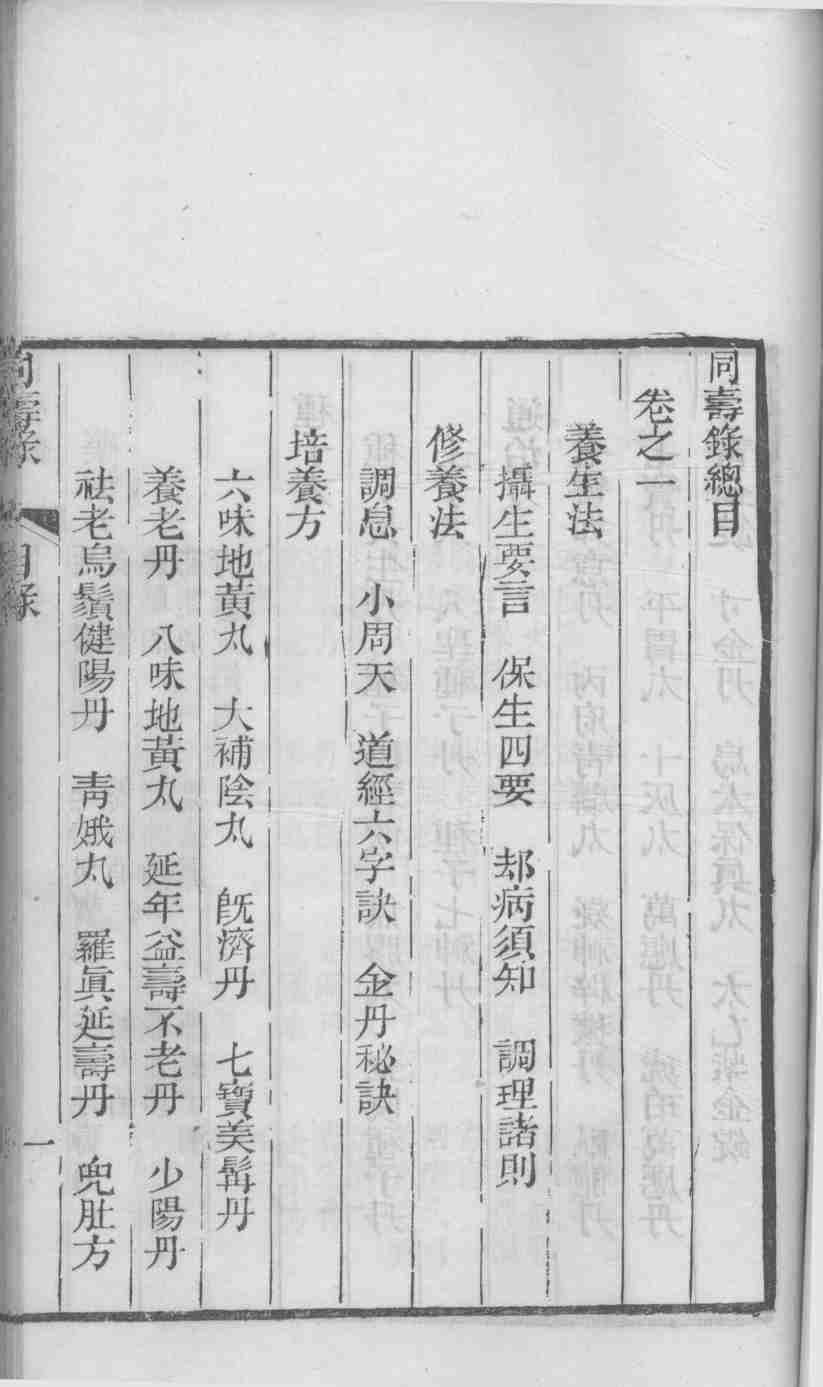 同壽錄總目
卷之一
養生法
攝生要言　保生四要　却病須知　調理諸則
修養法
調息　小周天　道經六字訣　金丹秘訣
培養方
六味地黃丸　大補陰丸　旣濟丹　七寶美髯丹
養老丹　八味地黃丸　延年益壽不老丹　少陽丹
祛老烏鬚健陽丹　靑娥丸　羅眞延壽丹　兜肚方
同壽錄　目錄　一